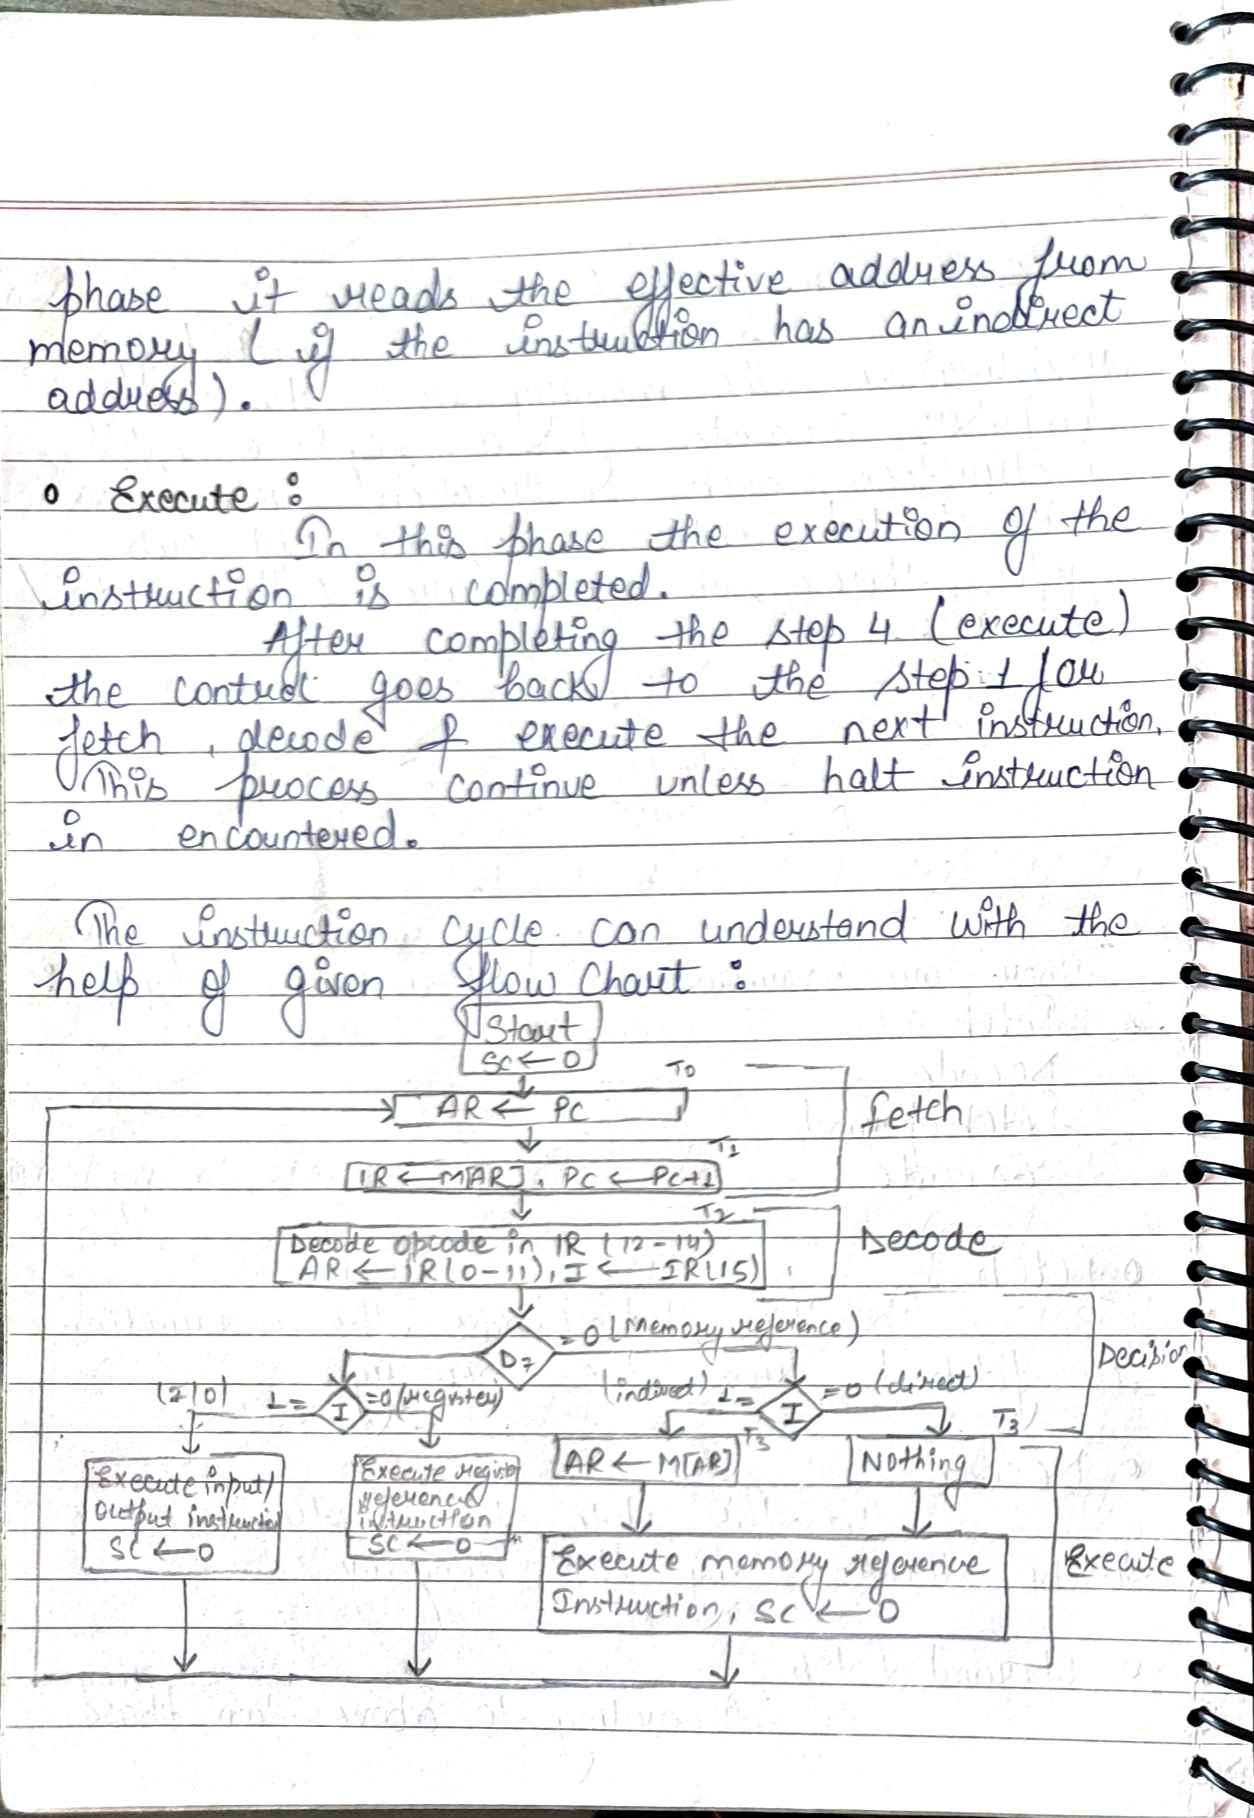 phase it reads the effective address from
memory (if the instruction has an indirect
address).
o Execute :
In this phase the execution of the
instruction is completed.
After completing the step 4 (execute)
the control goes back to the step 1 for
fetch, decode & execute the next instruction.
This process continue unless halt instruction
in encountered.
The instruction cycle can understand with the
help of given flow Chart :
Start
SC ← 0
T0
AR ← PC
fetch
T1
IR ← M[AR], PC ← PC+1
T2
Decode opcode in IR (12-14)
AR ← IR(0-11), I ← IR(15)
Decode
D7
=0 (Memory reference)
Decision
(I/O) 1= I =0 (register)
(indirect) 1= I =0 (direct)
T3
T3
AR ← M[AR]
Nothing
Execute input/
output instruction
SC ← 0
Execute register
reference
instruction
SC ← 0
Execute memory reference
Instruction, SC ← 0
Execute